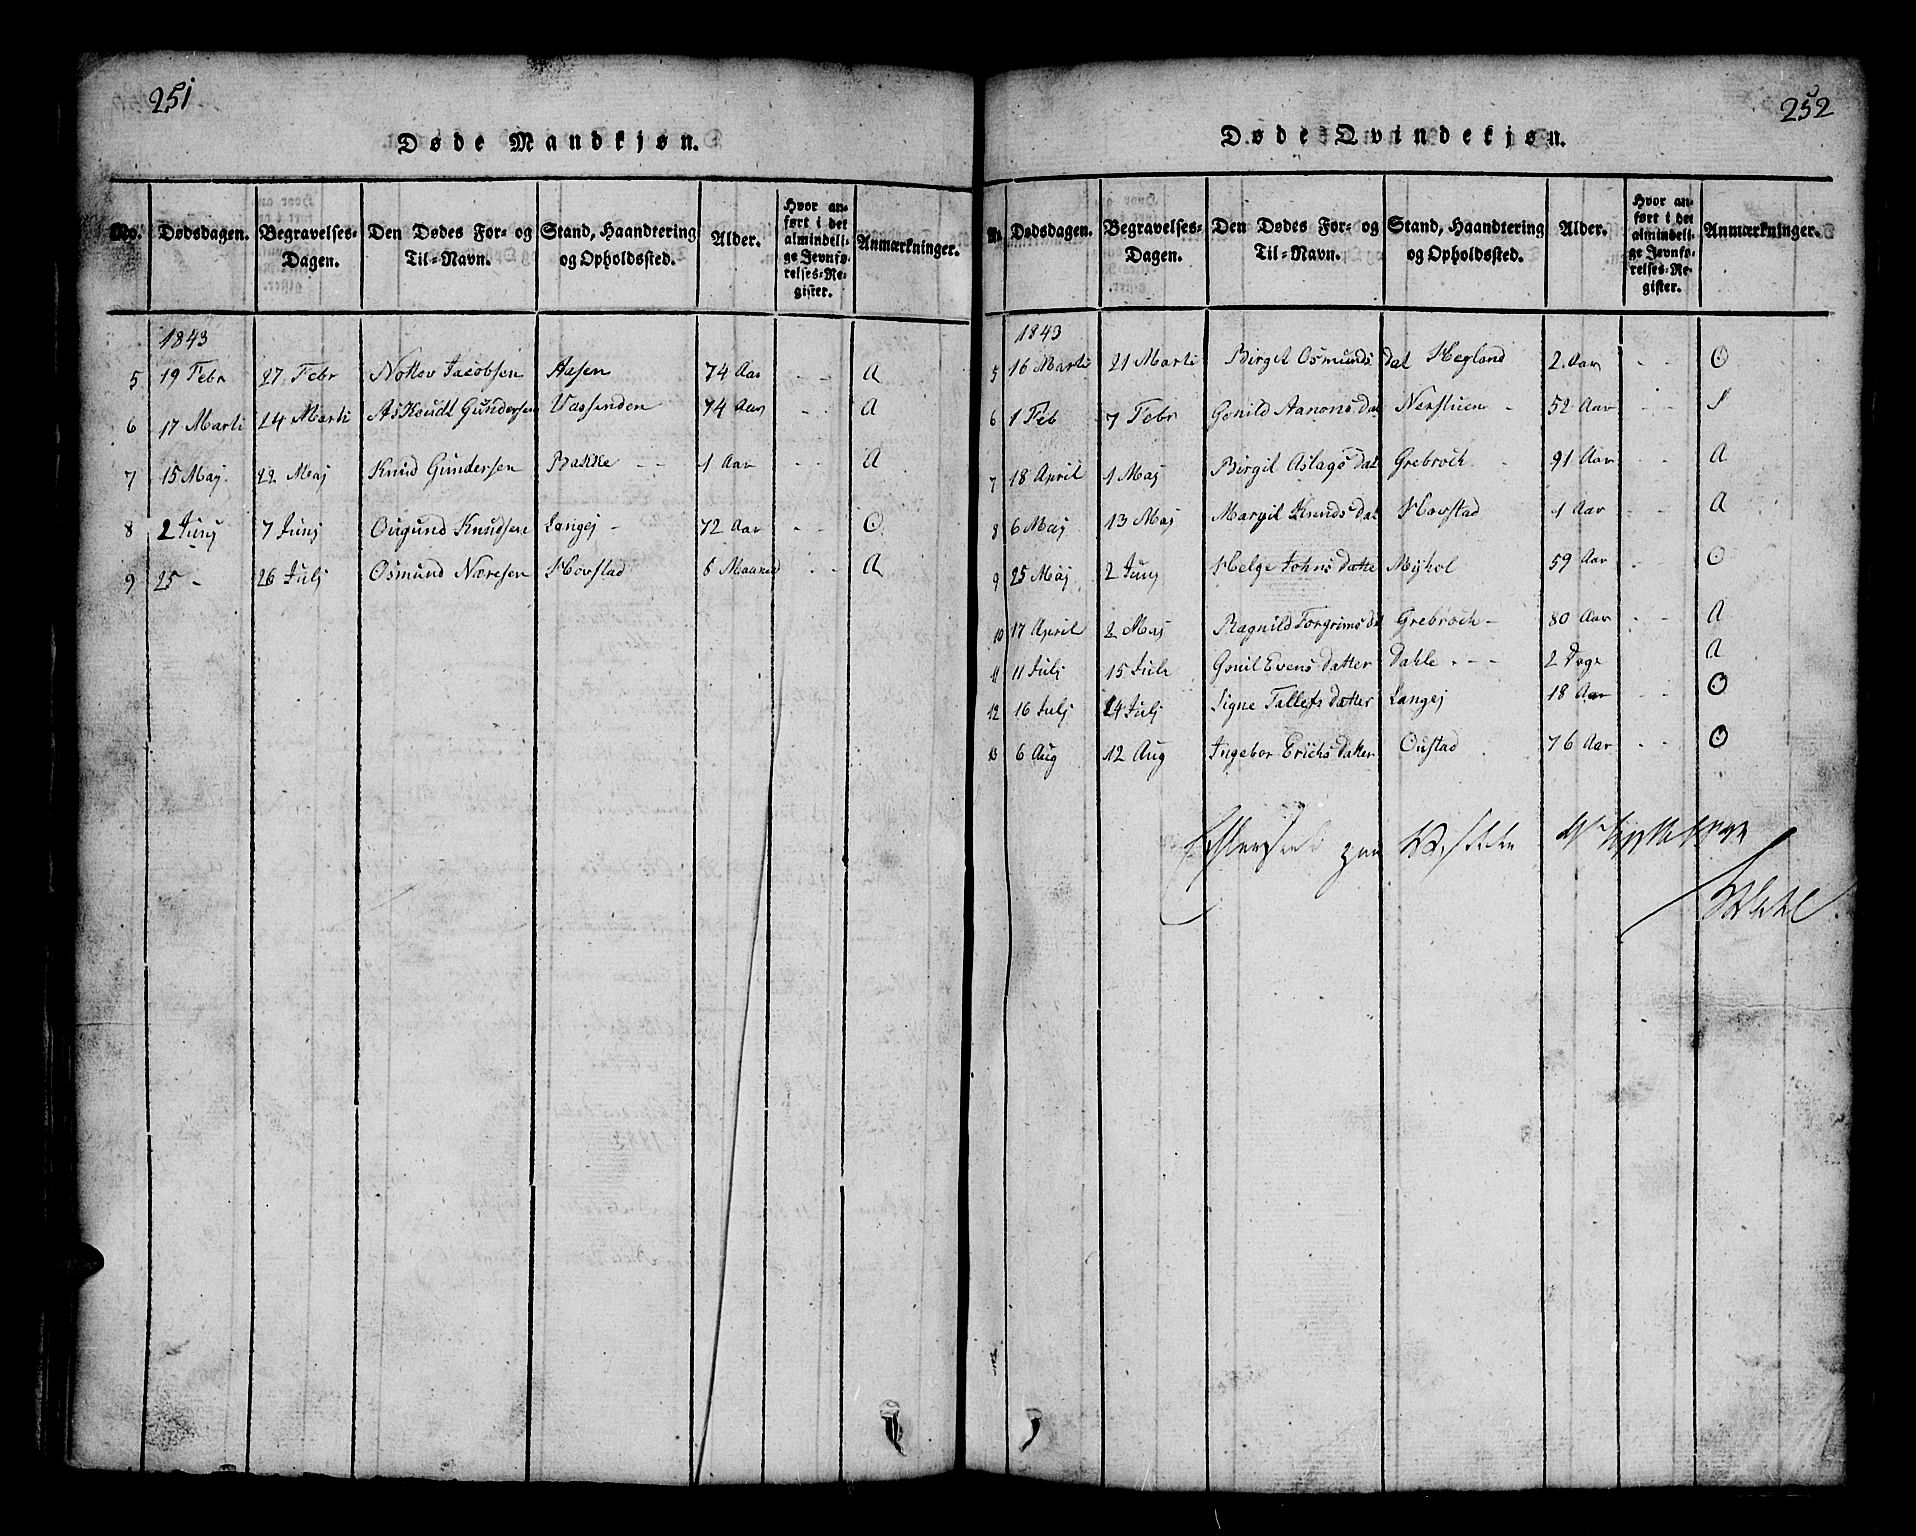 251
Døde Mandkjøn.
No. Dødsdagen. Begravelses-Dagen. Den Dødes For- og Til-Navn. Stand, Haandtering og Opholdssted. Alder. Hvor anført i det almindelige Jevnførelses-Register. Anmærkninger.
1843
5 19 Febr 27 Febr Nottov Jacobsen Aasen 74 Aar - - A
6 17 Marti 24 Marti Askoudt Gundersen Vassenden 74 Aar - - A
7 15 Maj. 22 Maj Knud Gundersen Bakke - - 1 Aar - - A
8 2 Junj 7 Junj Ougund Knudsen Langej - 72 Aar - - O
9 25 - 26 Julj Osmund Næresen Hovstad 6 Maaned - - A
252
Døde Qvindekjøn.
N. Dødsdagen. Begravelses-Dagen. Den Dødes For- og Til-Navn. Stand, Haandtering og Opholdssted. Alder. Hvor anført i det almindelige Jevnførelses-Register. Anmærkninger.
1843
5 16 Marti 21 Marti Birgit Osmundsdat Hegland 2 Aar - - O
6 1 Feb 7 Febr Gonild Aanonsdat Nerstuen - 52 Aar - -
7 18 April 1 Maj Birgit Aslagsdat Grebroch 91 Aar - - A
8 6 Maj 13 Maj Margit Knudsdat Hovstad 1 Aar - - A
9 25 Maj 2 Junj Helge Johnsdatte Myhol 59 Aar - - O
10 17 April 2 Maj Ragnild Torgrimsdat Grebroch - 80 Aar - - A
11 11 Julj 15 Juli Gonil Evensdatter Dahle - - - 2 Dage - - A
12 16 Julj 24 Julj Signe Tallefsdatter Langej 18 Aar - - O
13 6 Aug 12 Aug Ingebor Erichsdatter Oustad 76 Aar - - O